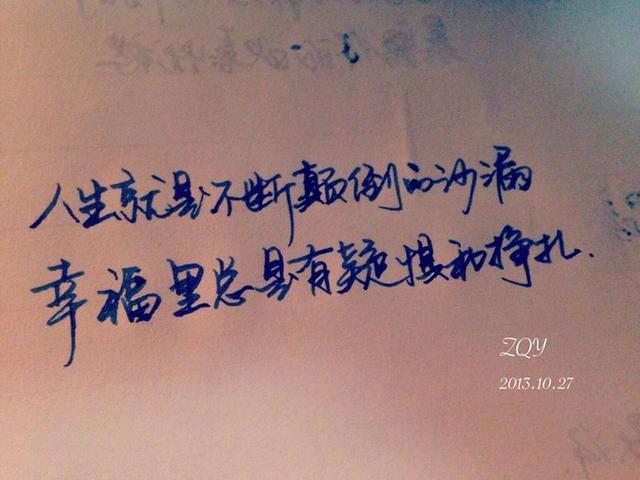 人生就是不断颠倒的沙漏
幸福里总是有疑惧和挣扎.
ZQY
2013.10.27